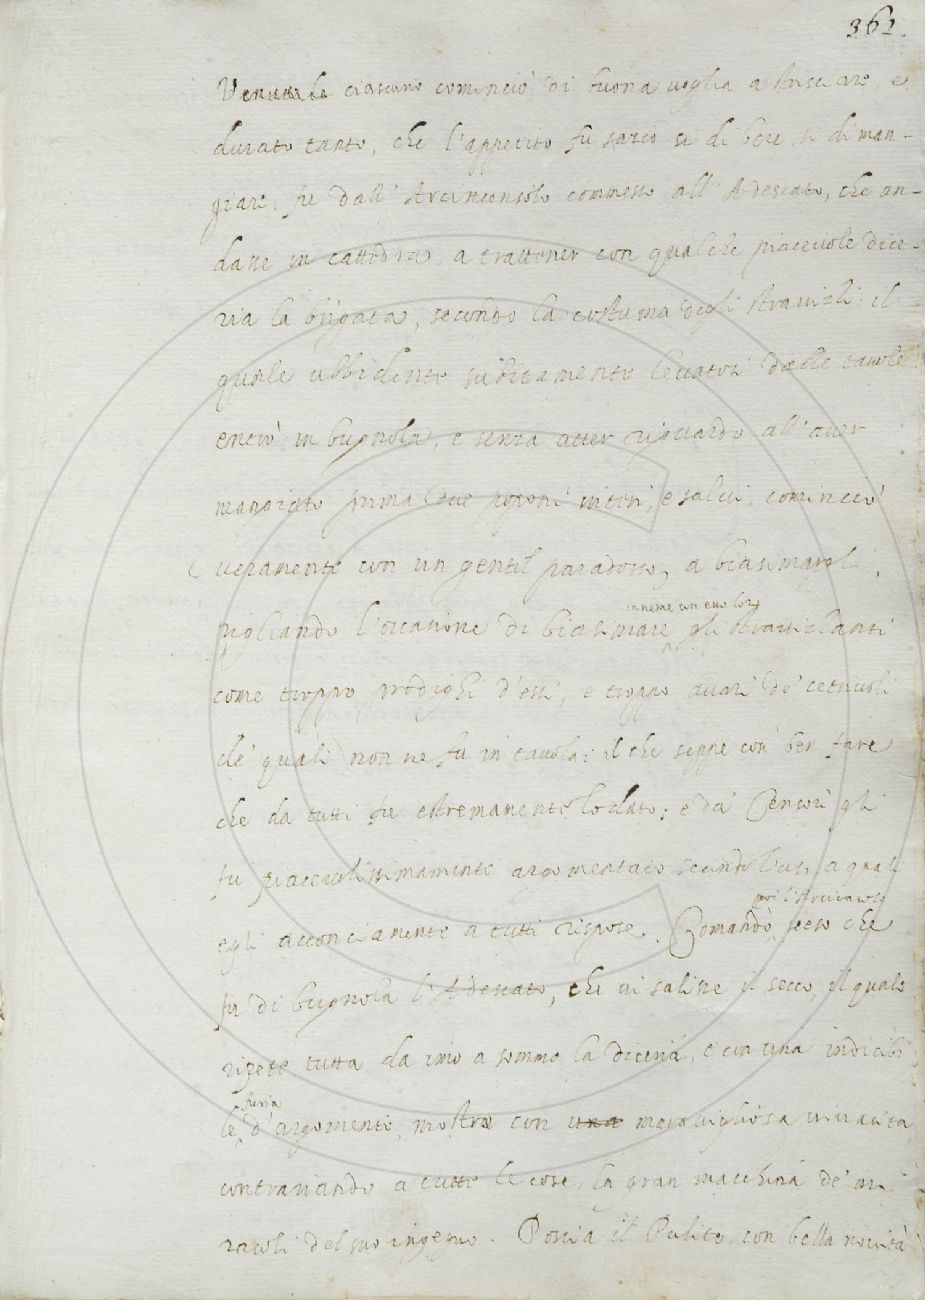 362.
Venutele ciascuno cominciò di buona voglia a , e
durato tanto, che l'appetito fu sazio si di bere, si di man-
giare, fu dall' Arciconsolo commesso all' Adescato, che an-
dasse in cattedra, a trattener con qualche piacevole dice-
ria la brigata, secondo la costuma degli stravizzi: il
quale ubbidente subitamente levatosi dalle tavole
entrò in bugnola, e senza aver riguardo all'aver
mangiato prima due poponi interi, e salvi, cominciò
veramente con un gentil paradosso, a biasimargli,
insieme con esso loro
pigliando l'occasione di biasimare gli stravizzanti
come troppo prodighi d'essi, e troppo avari de' cetriuoli
de' quali non ne fu in tavola: il che seppe così ben fare
che da tutti fu estremamente lodato; e da' Censori gli
fu piacevolissimamente argomentato secondo l'uso, a quali
poi l'Arciconsolo
egli acconciamente a tutti rispose. Comandò, sceso che
fu di bugnola l'Adescato, che vi salisse il secco, il quale
ripetè tutta da imo a sommo la diceria, e con una indicibi
furia
le, d'argomenti, mostrò con una maravigliosa vivacità
contrariando a tutte le cose, la gran macchina de' mi
racoli del suo ingegno. Poscia il Pulito, con bella novità